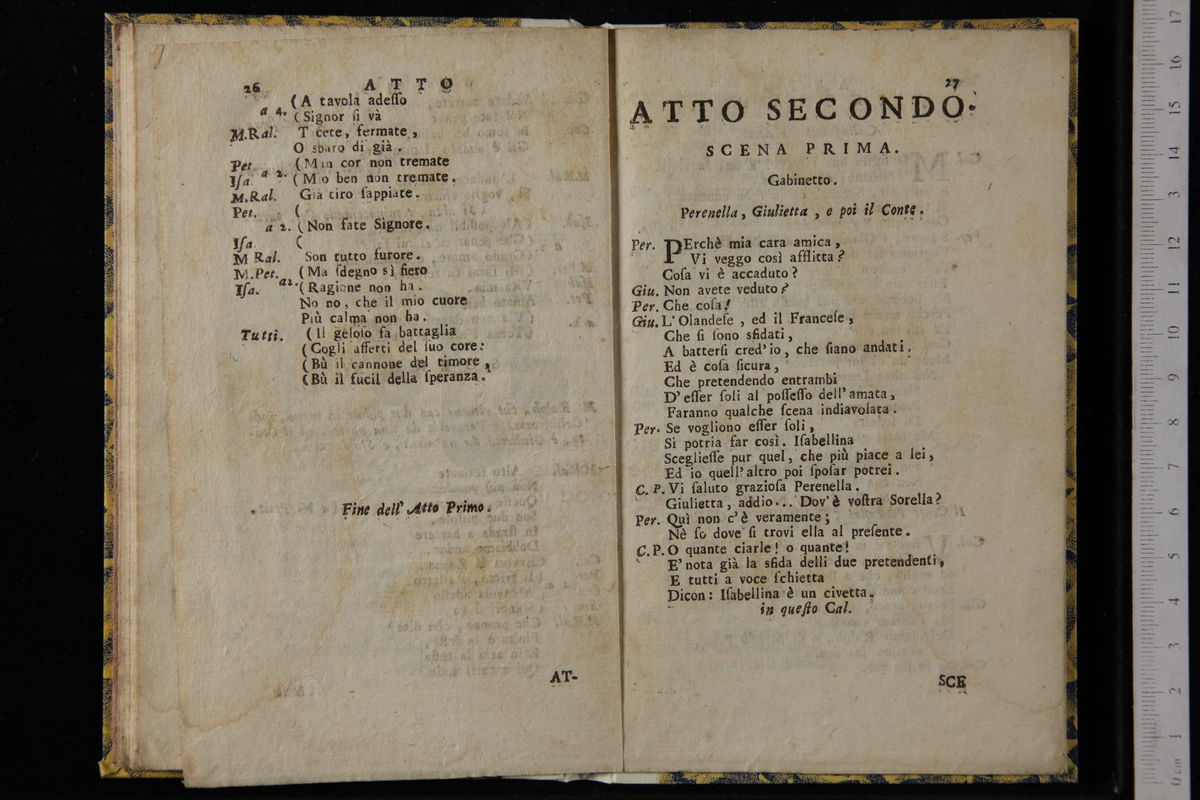 26 ATTO
(A tavola adeſſo
a 4. (Signor ſi và
M.Ral. T cete, fermate,
O sbaro di già.
Pet. (Min cor non tremate
Iſa a 2. (Mio ben non tremate.
M.Ral. Già tiro ſappiate.
Pet. (
a 2. (Non fate Signore.
Iſa. (
M Ral. Son tutto furore.
M.Pet. (Ma ſdegno sì fiero
Iſa. a2. (Ragione non ha.
No no, che il mio cuore
Più calma non ha.
Tutti. (Il geloſo fa battaglia
(Cogli affetti del ſuo core:
(Bù il cannone del timore,
(Bù il fucil della ſperanza.
Fine dell' Atto Primo.
AT-
27
ATTO SECONDO.
SCENA PRIMA.
Gabinetto.
Perenella, Giulietta, e poi il Conte.
Per. PErchè mia cara amica,
Vi veggo così afflitta?
Coſa vi è accaduto?
Giu. Non avete veduto?
Per. Che coſa!
Giu. L'Olandeſe, ed il Franceſe,
Che ſi ſono sfidati,
A batterſi cred'io, che ſiano andati.
Ed è coſa ſicura,
Che pretendendo entrambi
D'eſſer ſoli al poſſeſſo dell'amata,
Faranno qualche ſcena indiavolata.
Per. Se vogliono eſſer ſoli,
Si potria far così. Iſabellina
Sceglieſſe pur quel, che più piace a lei,
Ed io quell'altro poi ſpoſar potrei.
C. P. Vi ſaluto grazioſa Perenella.
Giulietta, addio... Dov'è voſtra Sorella?
Per. Quì non c'è veramente;
Nè ſo dove ſi trovi ella al preſente.
C.P. O quante ciarle! o quante!
E' nota già la sfida delli due pretendenti,
E tutti a voce ſchietta
Dicon: Iſabellina è un civetta.
in queſto Cal.
SCE